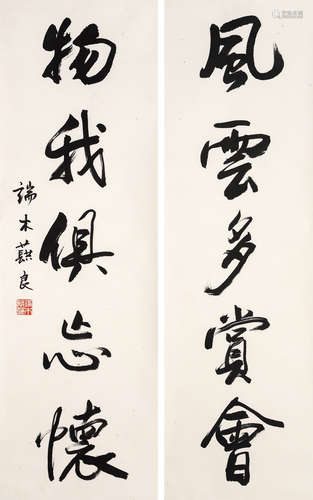 風雲多賞會
物我俱忘懷
端木蕻良